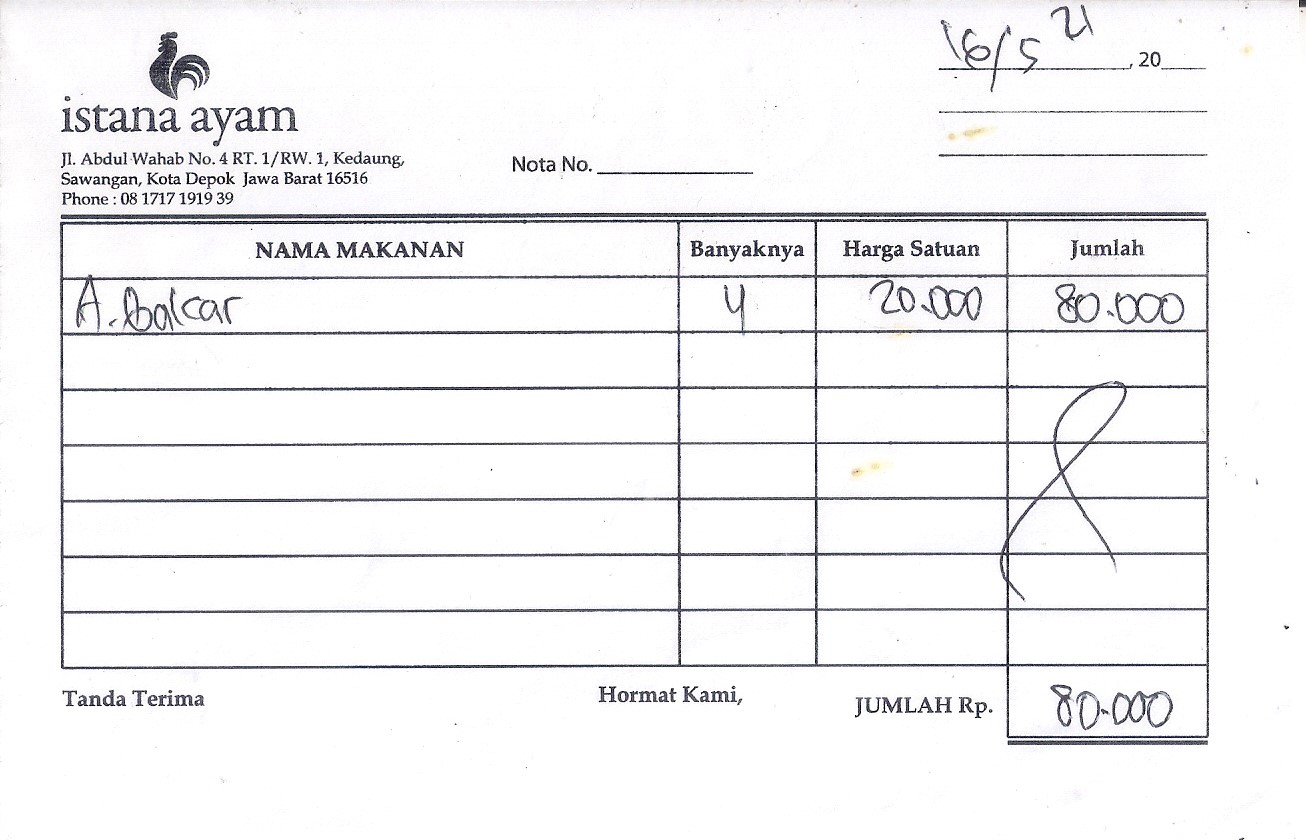 16/5 21
, 20
istana ayam
Jl. Abdul Wahab No. 4 RT. 1/RW. 1, Kedaung,
Sawangan, Kota Depok Jawa Barat 16516
Phone : 08 1717 1919 39
Nota No.
NAMA MAKANAN Banyaknya Harga Satuan Jumlah
A. Bakar 4 20.000 80.000
Tanda Terima Hormat Kami, JUMLAH Rp. 80.000